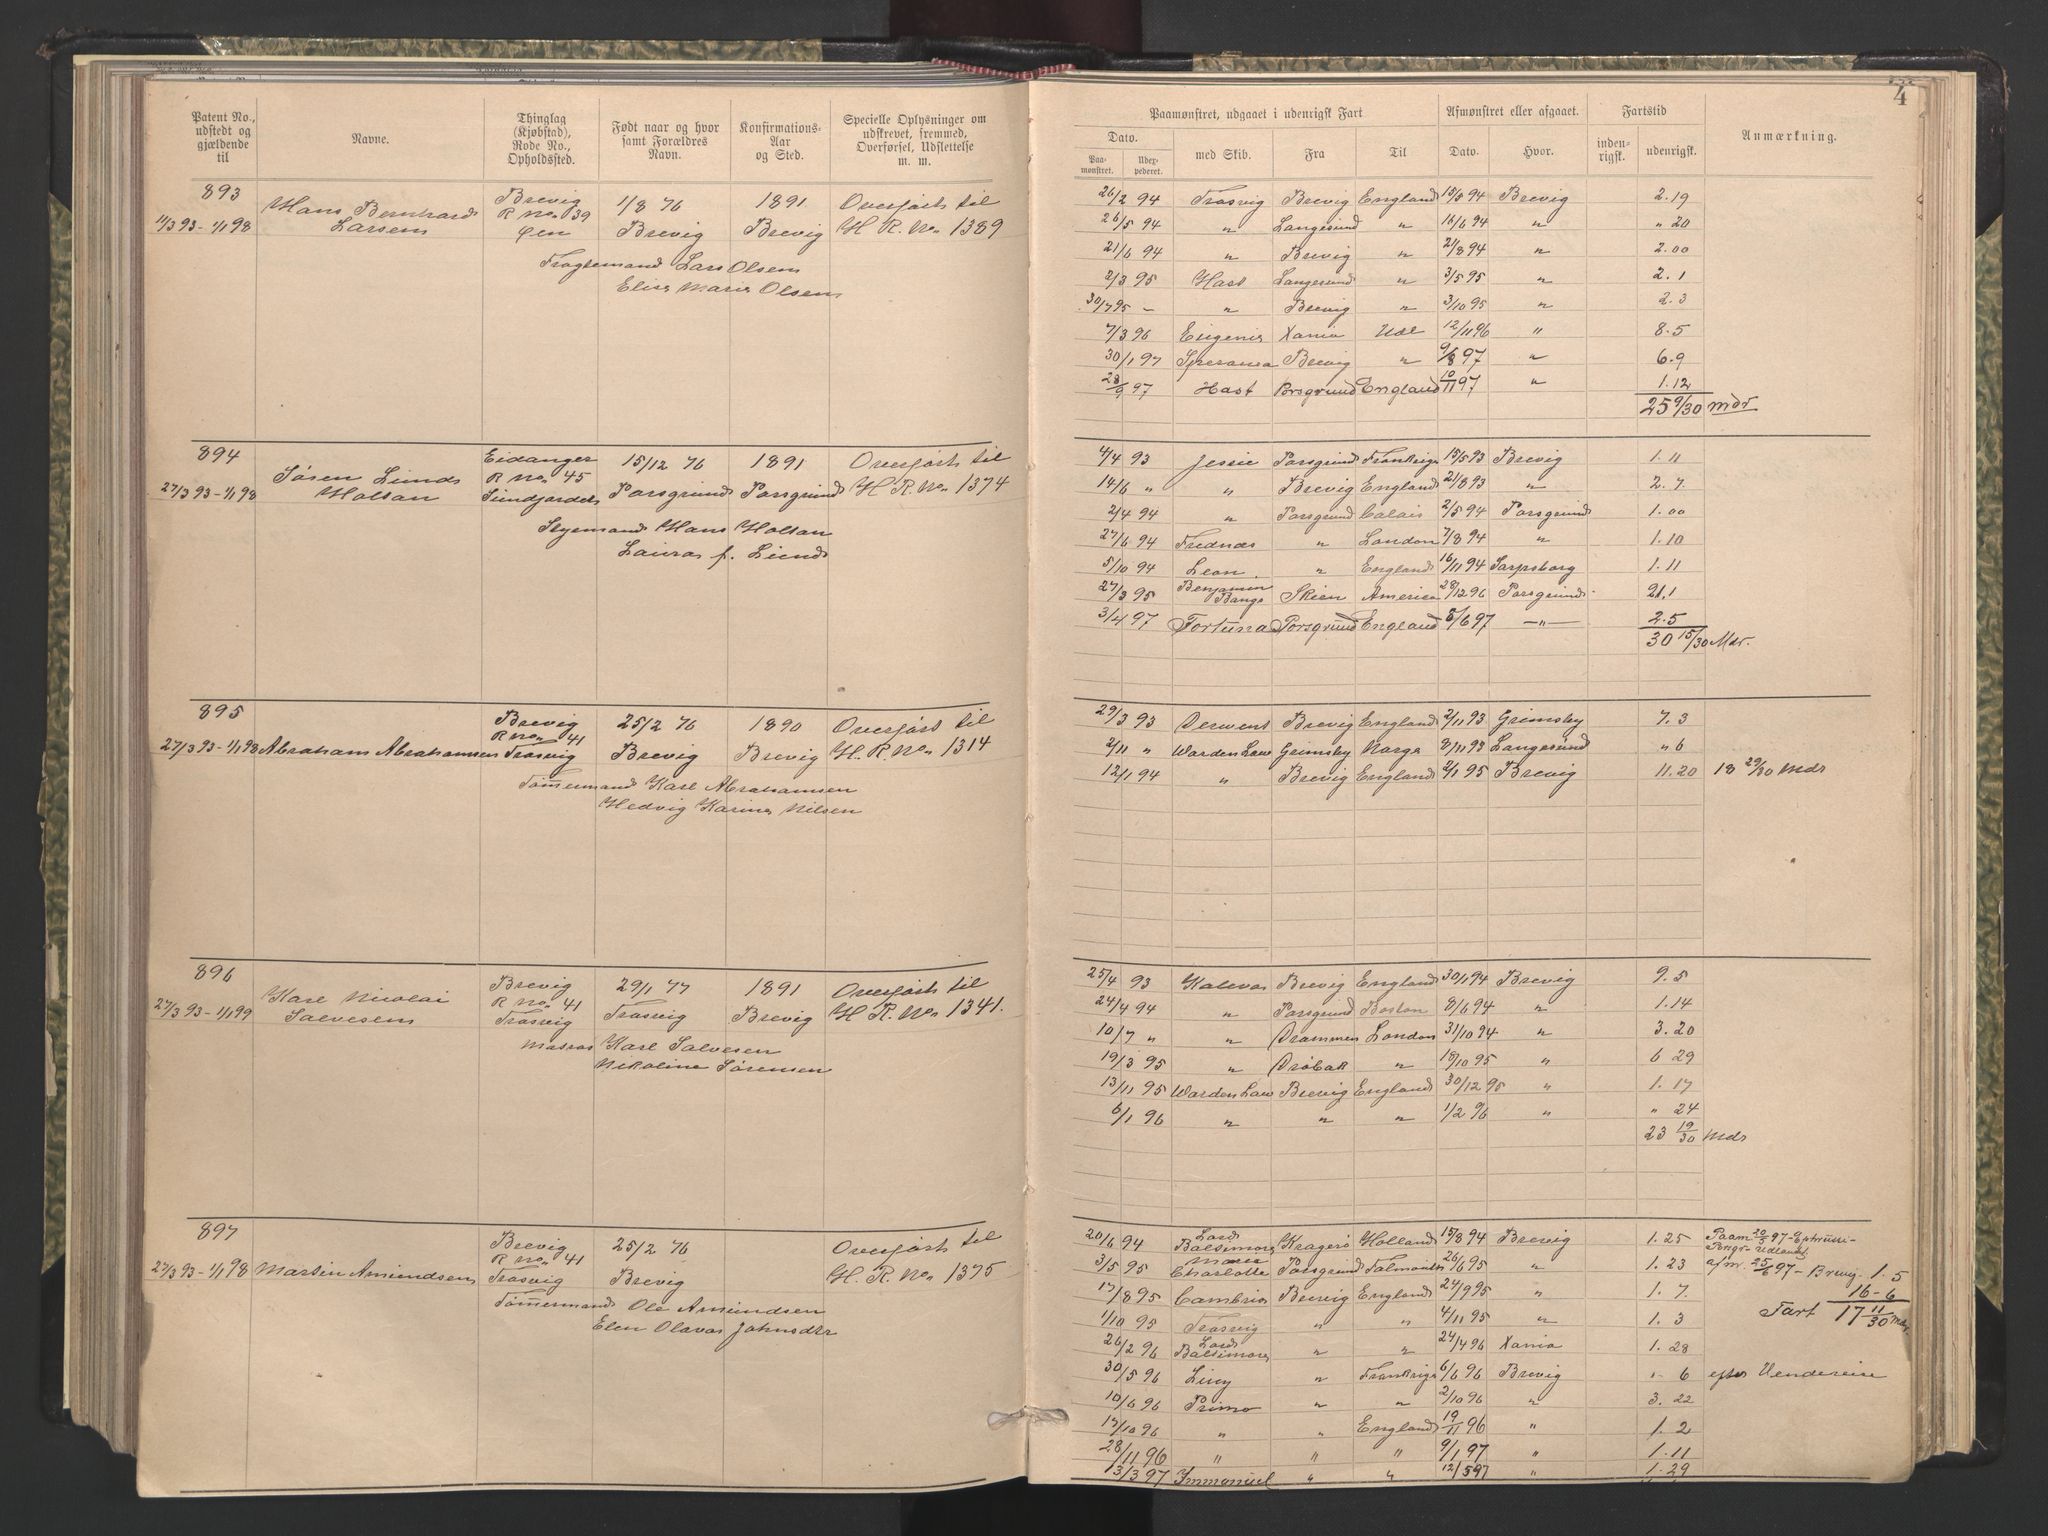 Patent No., udstedt og gjældende til | Navne. | Thinglag (Kjøbstad), Rode No., Opholdssted. | Født naar og hvor samt Forældres Navn. | Konfirmations-Aar og Sted. | Specielle Oplysninger om udskrevet, fremmed, Overførsel, Udslettelse m. m.
893 | Brevig | 1/8 76 | 1891 | Overført til
11/3 93 - 1/1 98 | Hans Bernhard Larsen | R no. 39 | Brevig | Brevig | H. R. No. 1389
Øen
Lars Olsen
Elise Marie Olsen
894 | Eidanger | 15/12 76 | 1891 | Overført til
27/3 93 - 1/1 98 | Søren Lund Holtan | R no. 45 | Porsgrund | Porsgrund | H. R. No. 1374
Hans Holtan
Laura f. Lund
895 | Brevig | 25/2 76 | 1890 | Overført til
R no. 41
27/3 93 - 1/1 98 | Abraham Abrahamsen | Trosvig | Brevig | Brevig | H. R. No. 1314
Tømmermand Karl Abrahamsen
Hedvig Karine Nilsen
896 | Brevig | 29/1 77 | 1891 | Overført til
27/3 93 - 1/1 99 | Karl Nicolai Salvesen | R no. 41 | Trosvig | Brevig | H. R. No. 1341.
Trosvig
Matros Karl Salvesen
Nikoline Sørensen
897 | Brevig | 25/2 76 | Overført til
R no. 41
27/3 93 - 1/1 98 | Martin Amundsen | Trosvig | Brevig | H. R. No. 1375
Tømmermand Ole Amundsen
Elen Olava Johnsdtr
4
Paamønstret, udgaaet i udenrigsk Fart | Afmønstret eller afgaaet. | Fartstid | Anmærkning.
Dato. | med Skib. | Fra | Til | Dato. | Hvor. | indenrigsk. | udenrigsk.
Paamønstret. | Uderpederet.
26/2 94 | Trosvig | Brevig | England | 15/5 94 | Brevig | 2.19
26/5 94 | " | Langesund | " | 16/6 94 | " | " 20
21/6 94 | " | Brevig | " | 21/8 94 | " | 2.00
2/3 95 | Hast | Langesund | " | 3/5 95 | " | 2.1
30/7 95 | " | Brevig | " | 3/10 95 | " | 2.3
7/3 96 | Eugenie | Xania | Udl | 12/11 96 | " | 8.5
30/1 97 | Speranza | Brevig | " | 9/8 97 | " | 6.9
28/9 97 | Hast | Porsgrund | England | 10/11 97 | " | 1.12
25 9/30 mdr
4/4 93 | Jessie | Porsgrund | Frankrige | 15/5 93 | Brevig | 1.11
14/6 " | " | Brevig | England | 21/8 93 | " | 2.7.
2/4 94 | " | Porsgrund | Calais | 2/5 94 | Porsgrund | 1.00
27/6 94 | Frednæs | " | London | 7/8 94 | " | 1.10
5/10 94 | Leon | " | England | 16/11 94 | Sarpsborg | 1.11
27/3 95 | Benjamin Bangs | Skien | America | 28/12 96 | Porsgrund | 21.1
31/4 97 | Fortuna | Porsgrund | England | 5/6 97 | " | 2.5
30 15/30 Mdr.
29/3 93 | Derwent | Brevig | England | 2/11 93 | Grimsby | 7.3
2/11 " | Warden Law | Grimsby | Norge | 8/11 93 | Langesund | " 6
12/1 94 | " | Brevig | England | 2/1 95 | Brevig | 11.20 | 18 29/30 Mdr
25/4 93 | Kaleva | Brevig | England | 30/1 94 | Brevig | 9.5
24/4 94 | " | Porsgrund | Boston | 8/6 94 | " | 1.14
10/7 " | " | Drammen | London | 31/10 94 | " | 3.20
19/3 95 | " | Drøbak | " | 18/10 95 | " | 6 29
13/11 95 | Warden Law | Brevig | England | 30/12 95 | " | 1.17
6/1 96 | " | " | " | 1/2 96 | " | " 24
23 19/30 Mdr
20/6 94 | Lord Baltimore | Kragerø | Holland | 15/8 94 | Brevig | 1.25 | Paam 20/5 97 - Ephrussi - Porsgr - Udlandet
3/5 95 | Marie Charlotte | Porsgrund | Falmouth | 26/6 95 | " | 1.23 | afm. 25/6 97 - Brevig 1.5
17/8 95 | Cambria | Brevig | England | 24/9 95 | " | 1.7. | 16 - 6
1/10 95 | Trosvig | " | " | 4/11 95 | " | 1.3 | Fart 17 11/30 mdr.
26/2 96 | Lord Baltimore | " | " | 24/4 96 | Xania | 1.28
30/5 96 | Lucy | " | Frankrige | 6/6 96 | Brevig | " 6
10/6 96 | Primo | " | " | 2/10 96 | " | 3.22
17/10 96 | " | " | England | 19/11 96 | " | 1.2
28/11 96 | " | " | " | 9/1 97 | " | 1.11
13/3 97 | Immanuel | " | " | 12/5 97 | " | 1.29